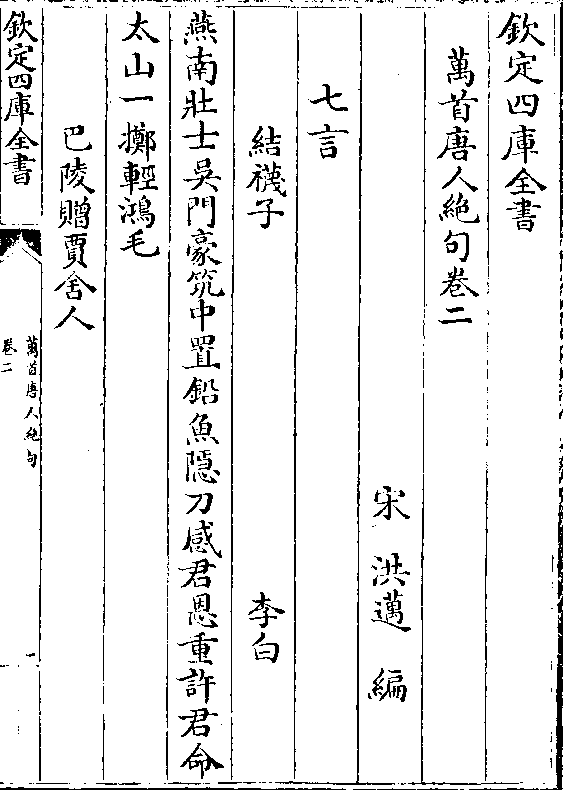 欽定四庫全書
萬首唐人絶句卷二
宋 洪邁 編
七言
結襪子 李白
燕南壯士吳門豪筑中置鉛魚隱刀感君恩重許君命
太山一擲輕鴻毛
巴陵贈賈舍人
欽定四庫全書
萬首唐人絶句
卷二
一